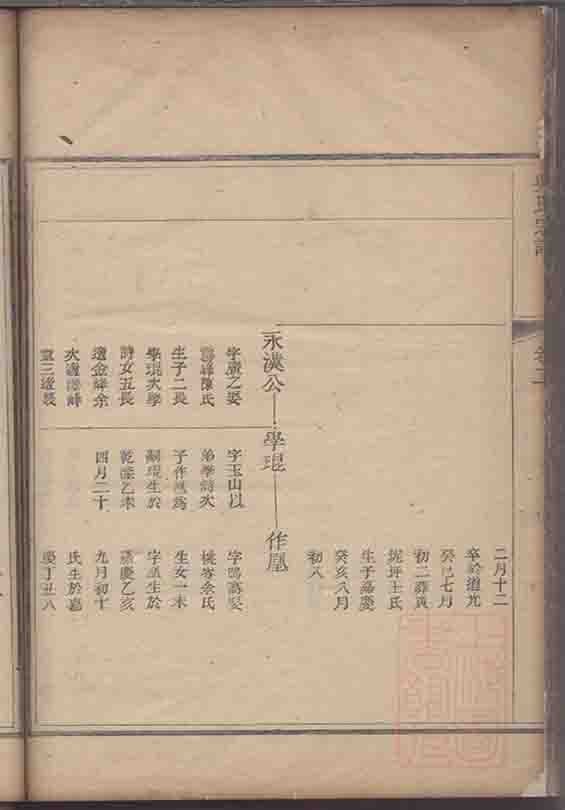 卷二
二月十二
卒於道光
癸巳七月
初二葬黃
坭坪王氏
生于嘉慶
癸亥八月
初八
永漢公 學琨 作凰
字廣乙娶
陳氏
生子二長
學琨次學
詩女五長
適金峰余
次適
三適裴
字玉山以
弟學詩次
子作凰為
嗣琨生於
乾隆乙未
四月二十
字鳴
桃岑余氏
生女一未
字凰生於
嘉慶乙亥
九月初十
氏生於嘉
慶丁丑八